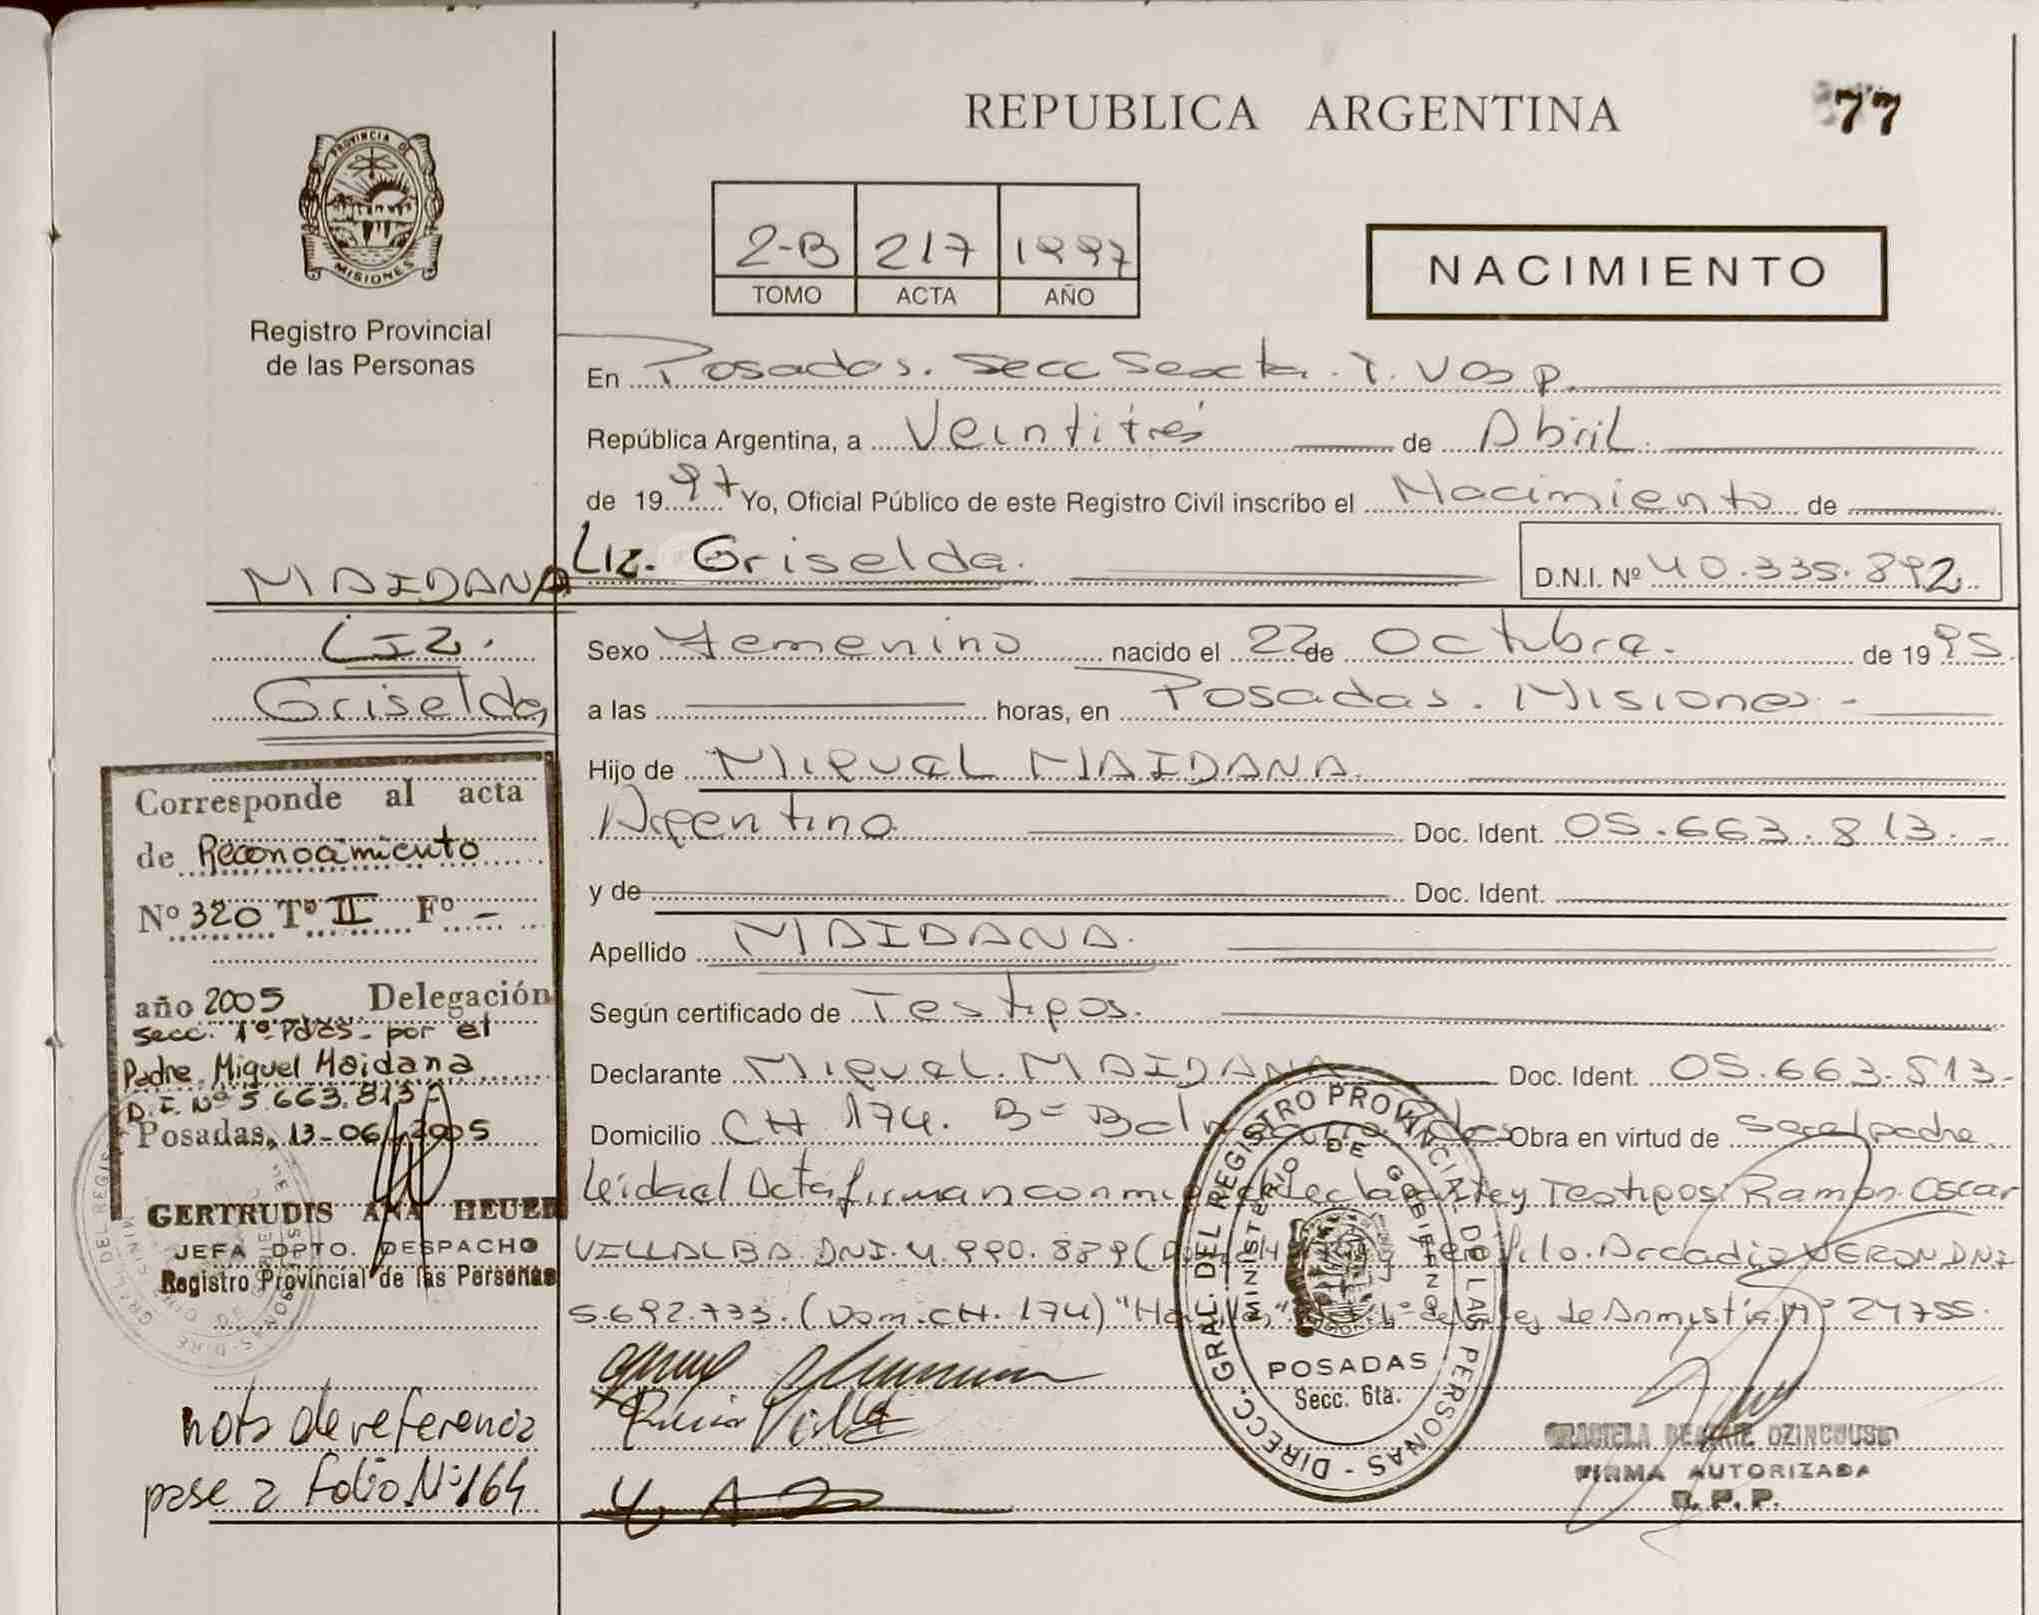 REPUBLICA ARGENTINA
77
PROVINCIA DE
MISIONES
Registro Provincial
de las Personas
2-B 217 1997
TOMO ACTA AÑO
NACIMIENTO
En Posadas. Secc Sexta. T. V
República Argentina, a Veintitrés de Abril.
de 1997 Yo, Oficial Público de este Registro Civil inscribo el Nacimiento de
Liz. Griselda.
D.N.I. Nº 40.335.892
MAIDANA
LIZ.
Griselda
Sexo Femenino nacido el 22 de Octubre. de 1995.
a las horas, en Posadas. Misiones -
Hijo de Miguel MAIDANA.
Argentino Doc. Ident. 05.663.813.-
y de Doc. Ident.
Apellido MAIDANA.
Según certificado de Testigos.
Declarante Miguel. MAIDANA Doc. Ident. 05.663.813-
Domicilio CH 174. Bº Obra en virtud de Ser el padre
Leida el Acta firman conmigo Declarante y Testigos: Ramón. Oscar
VILLALBA. DNI. 4.990.889 (Dom. Arcadio VERON DNI
5.692.773. (Dom. CH. 174) de Ley de Amnistía Nº 24755.
Corresponde al acta
de Reconocimiento
Nº 320 Tº II Fº -
año 2005 Delegación
secc. 1º Pdas- por el
Padre Miguel Maidana
D.I. Nº 5.663.813
Posadas, 13-06-2005
GERTRUDIS ANA HEUER
JEFA DPTO. DESPACHO
Registro Provincial de las Personas
nota de referencia
pase a folio Nº 164
DIRECC. GRAL. DEL REGISTRO PROVINCIAL DE LAS PERSONAS -
MINISTERIO DE GOBIERNO
POSADAS
Secc. 6ta.
GRACIELA BEATRIZ
FIRMA AUTORIZADA
R. P. P.